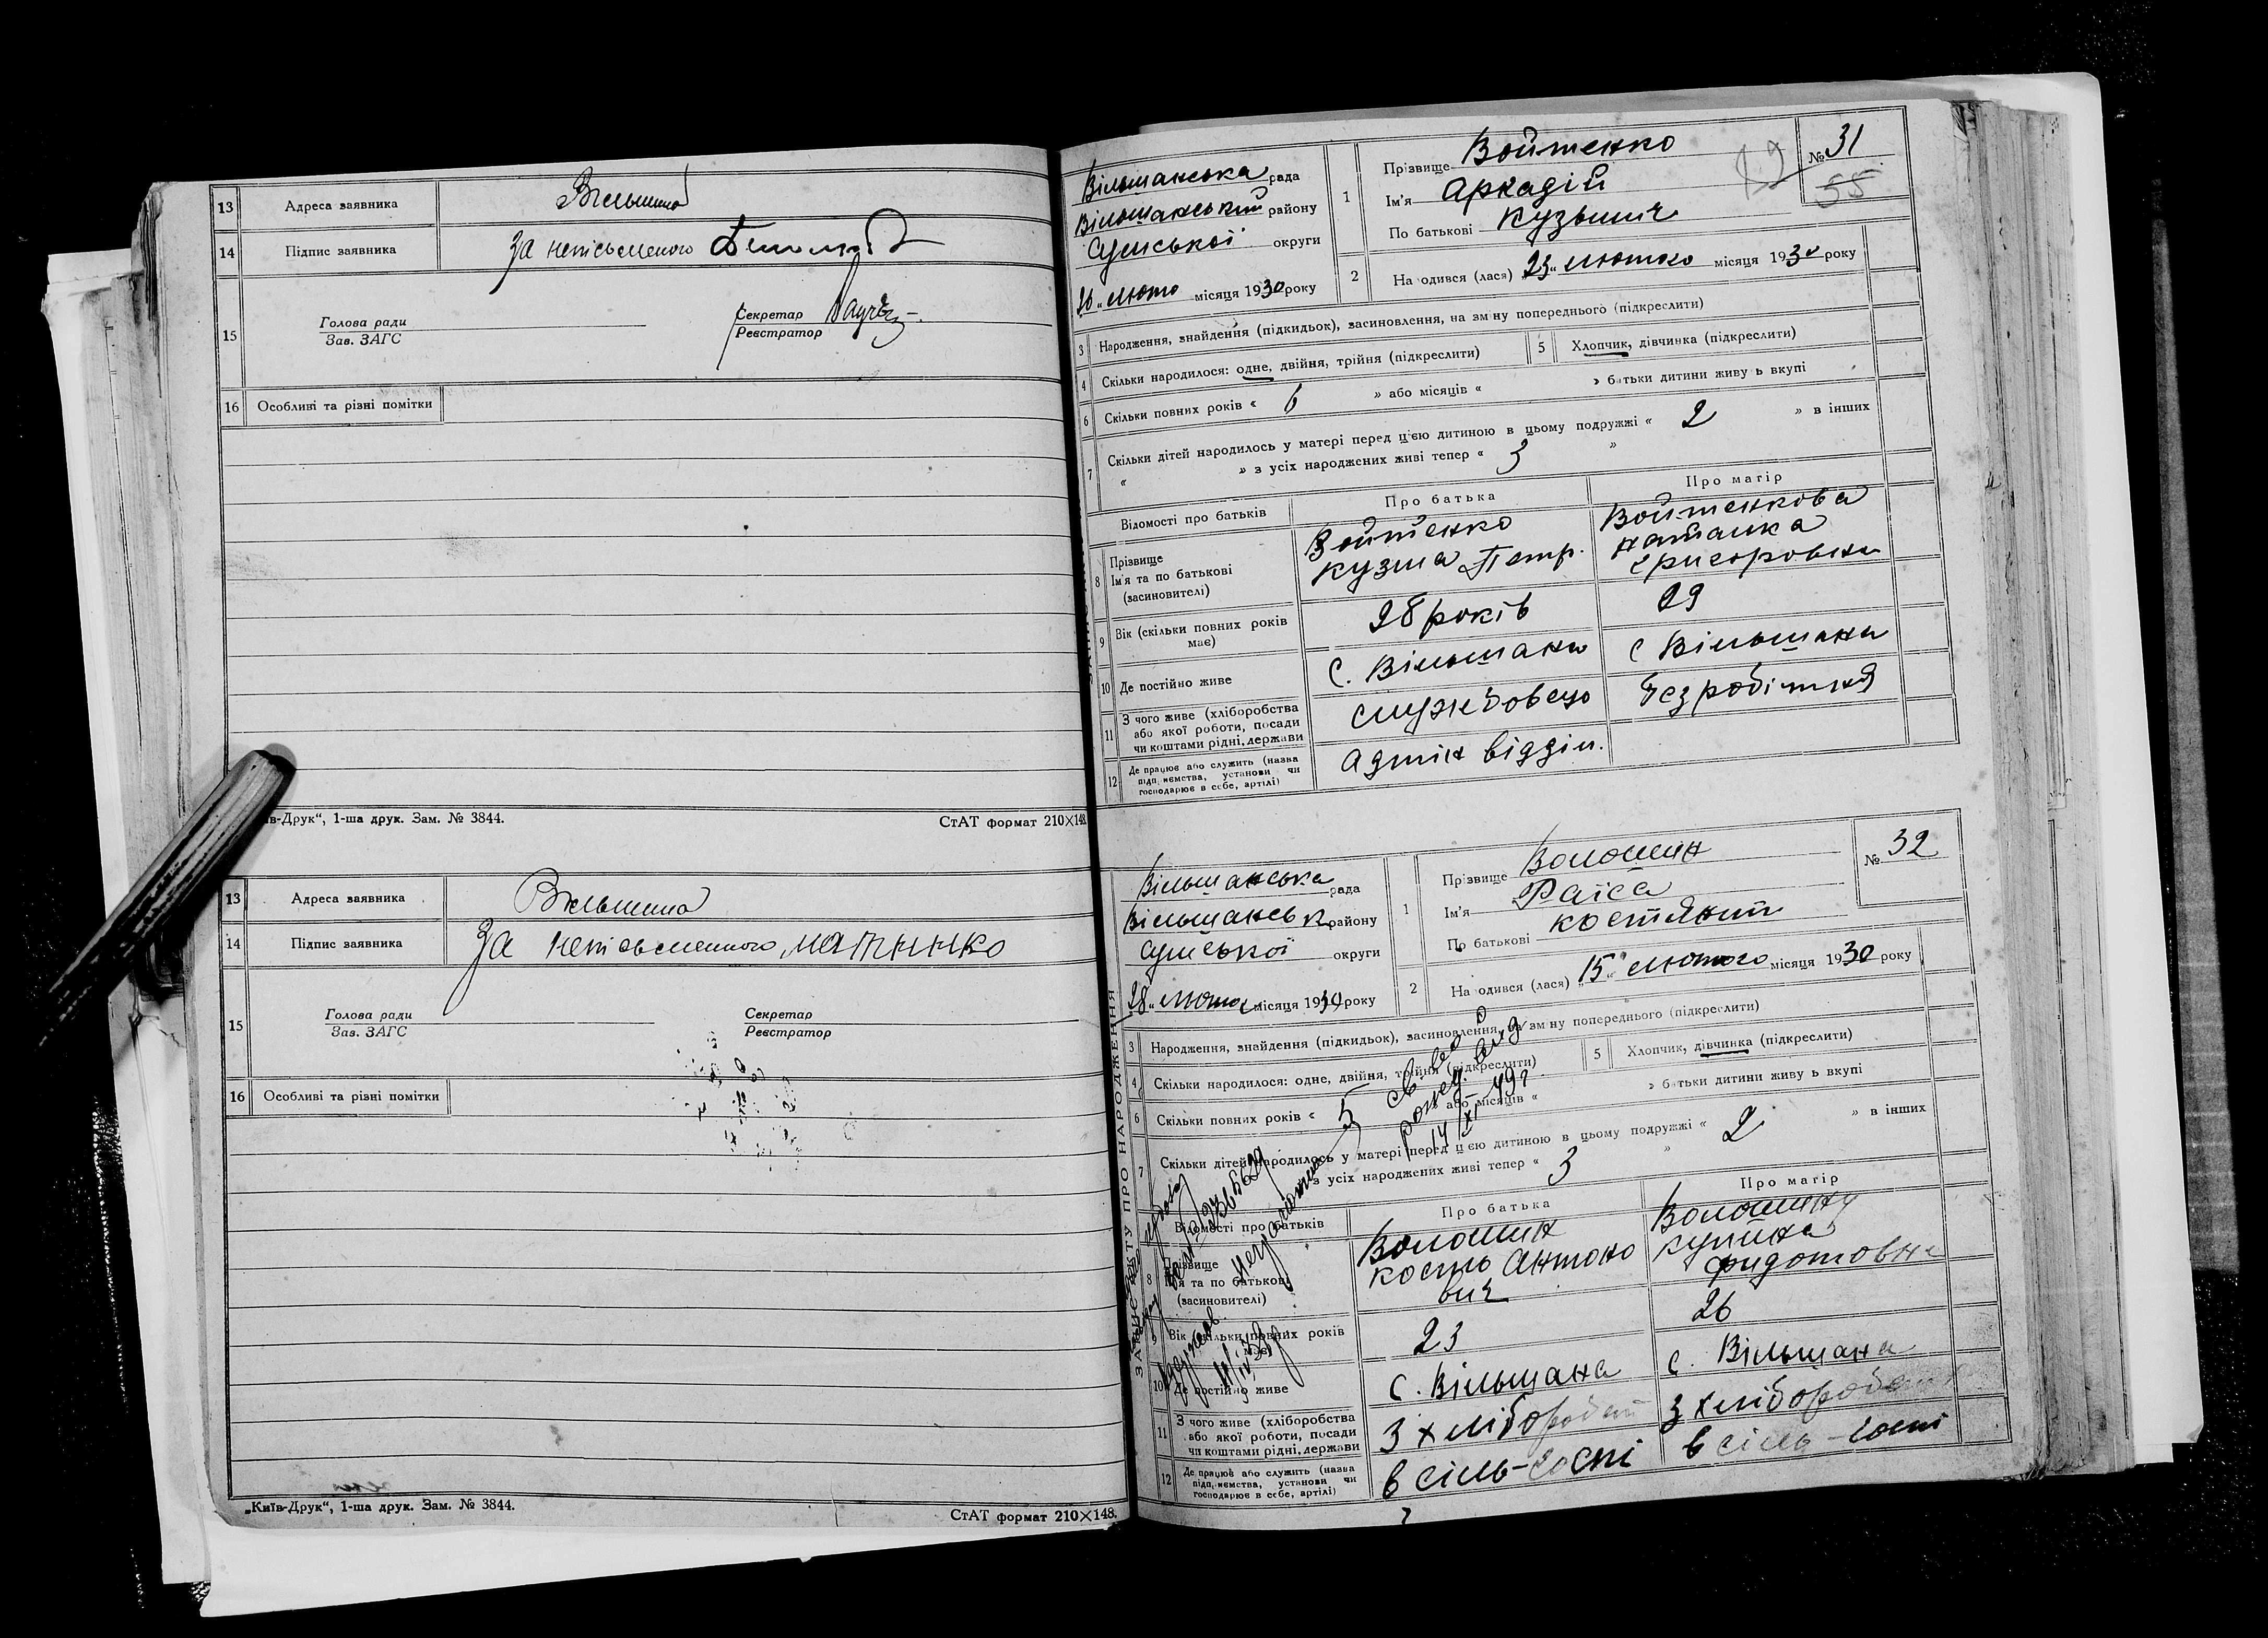 13 Адреса заявника Вільшана
14 Підпис заявника За непісьменого
15 Голова ради Секретар
Зав. ЗАГС Реєстратор
16 Особливі та різні помітки
„Київ-Друк“, 1-ша друк. Зам. № 3844. СтАТ формат 210×148.
13 Адреса заявника Вільшана
14 Підпис заявника За непісьменного
15 Голова ради Секретар
Зав. ЗАГС Реєстратор
16 Особливі та різні помітки
„Київ-Друк“, 1-ша друк. Зам. № 3844. СтАТ формат 210×148.
Вільшанська рада
Вільшанський району
Сумської округи
місяця 1930 року
1 Прізвище Войтенко
Ім'я Аркадій
По батькові Кузьмич
№ 31
55
2 На одився (лася) „23„ лютого місяця 1930 року
3 Народження, знайдення (підкидьок), засиновлення, на зміну попереднього (підкреслити)
4 Скільки народилося: одне, двійня, трійня (підкреслити) 5 Хлопчик, дівчинка (підкреслити)
6 Скільки повних років « 6 » або місяців « » батьки дитини живуть вкупі
7 Скільки дітей народилось у матері перед цією дитиною в цьому подружжі « 2 » в інших
« » з усіх народжених живі тепер « 3 »
Відомості про батьків Про батька Про матір
8 Прізвище
Ім'я та по батькові
(засиновителі)
Войтенко
Кузма Петр.
Войтенкова
Наталка
Григоровна
9 Вік (скільки повних років має) 28 років 29
10 Де постійно живе с. Вільшана с Вільшана
11 З чого живе (хліборобства
або якої роботи, посади
чи коштами рідні, держави
службовець безробітня
12 Де працює або служить (назва
підприємства, установи чи
господарює в себе, артілі)
Адмін відділ.
ЗАПИС АКТУ ПРО НАРОДЖЕННЯ
Вільшанська рада
Вільшанськ району
Сумської округи
28„ місяця 1930 року
1 Прізвище Волошин
Ім'я Раїса
По батькові
№ 32
2 На одився (лася) „15„ лютого місяця 1930 року
3 Народження, знайдення (підкидьок), засиновлення, на зміну попереднього (підкреслити)
4 Скільки народилося: одне, двійня, трійня (підкреслити) 5 Хлопчик, дівчинка (підкреслити)
6 Скільки повних років « 5 » або місяців « » батьки дитини живуть вкупі
7 Скільки дітей народилось у матері перед цією дитиною в цьому подружжі « 2 » в інших
з усіх народжених живі тепер « 3 »
Відомості про батьків Про батька Про матір
8 Прізвище
Ім'я та по батькові
(засиновителі)
Волошин
Кость Антоно
вич
Волошина
Фидотовна
9 Вік (скільки повних років має) 23 26
10 Де постійно живе с. Вільшана с. Вільшана
11 З чого живе (хліборобства
або якої роботи, посади
чи коштами рідні, держави
З хлібороб З хлібороб
12 Де працює або служить (назва
підприємства, установи чи
господарює в себе, артілі)
в сіль-госпі в сіль-госпі